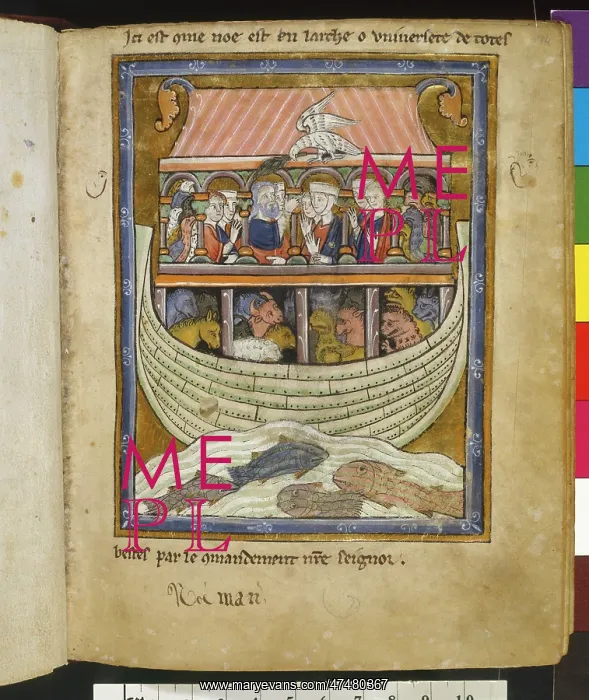 Ici est qme noe est en larche o vniuersete de totes
ME
PL
ME
PL
bestes par le qmandement nr̄e seignor .
www.maryevans.com/47480367